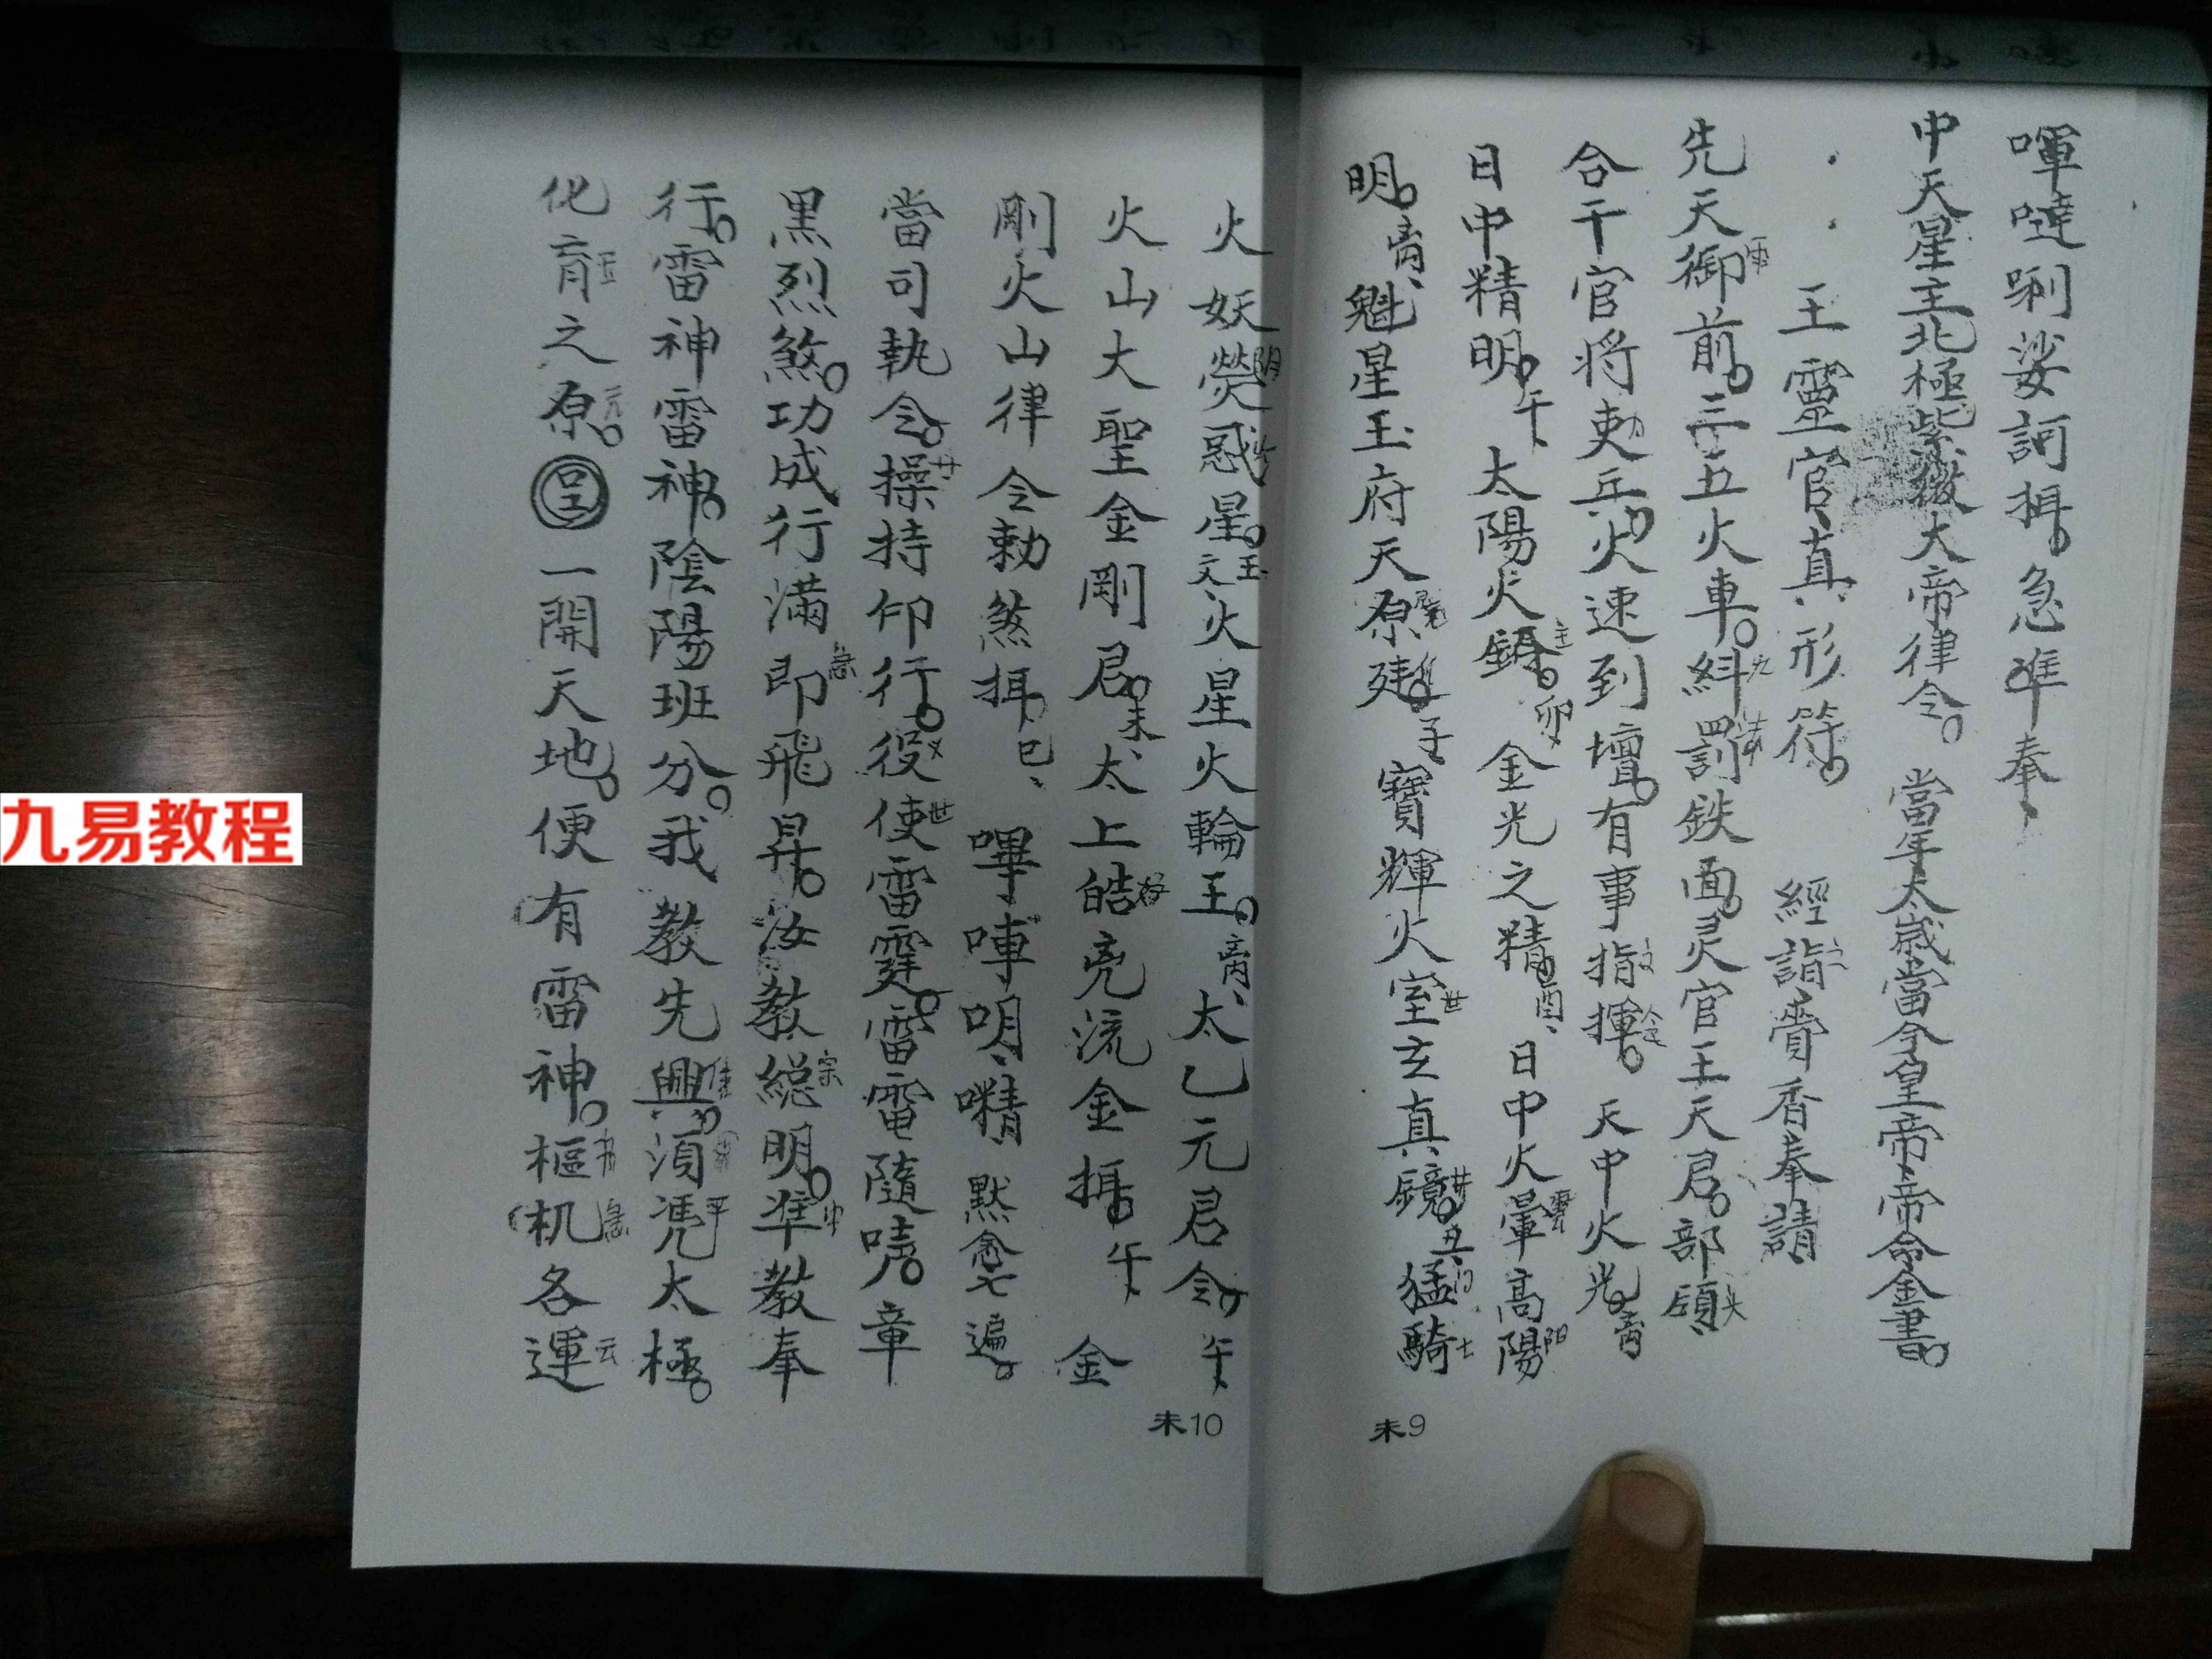 嗶噠唎娑訶揖急準奉
中天星主北極紫微大帝律令當年太歲當今皇帝帝命金書
王靈官真形符 經詣齎香奉請
先天御前三五火車糾罰鉄面灵官王天君部領
合干官将吏兵火速到壇有事指揮 天中火光
日中精明午 太陽火 卯 金光之精酉 日中火暈高陽
明 魁星玉府天原 子 寶輝火室玄真鏡丑 猛騎
未9
火妖熒惑星 火星火輪王 太乙元君令午
火山大聖金剛君未 太上皓亮流金揖午 金
剛火山律令勅煞揖巳 嗶唓明 默念七遍
當司執令操持印行役使雷霆雷電隨 章
黑烈煞功成行滿即飛昇汝教總明準教奉
行雷神雷神陰陽班分我教先興須憑太極
化育之原 一開天地便有雷神樞机各運
未10
九易教程